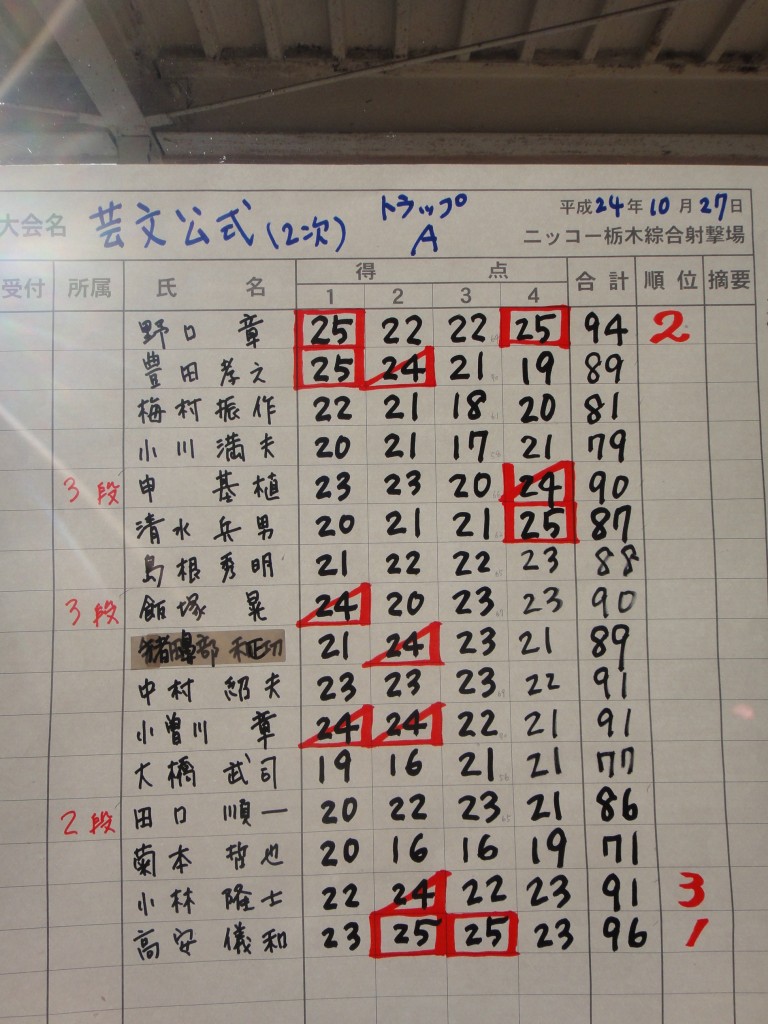 大会名 芸文公式(2次) トラップ 平成24年10月27日
A ニッコー栃木綜合射撃場
受付 所属 氏名 得点 合計 順位 摘要
1 2 3 4
野口 章 25 22 22 25 94 2
豊田孝之 25 24 21 19 89
梅村振作 22 21 18 20 81
小川満夫 20 21 17 21 79
3段 申 基植 23 23 20 24 90
清水兵男 20 21 21 25 87
島根秀明 21 22 22 23 88
3段 飯塚 晃 24 20 23 23 90
21 24 23 21 89
中村紹夫 23 23 23 22 91
小曽川 章 24 24 22 21 91
大橋武司 19 16 21 21 77
2段 田口順一 20 22 23 21 86
菊本哲也 20 16 16 19 71
小林隆士 22 24 22 23 91 3
高安儀和 23 25 25 23 96 1